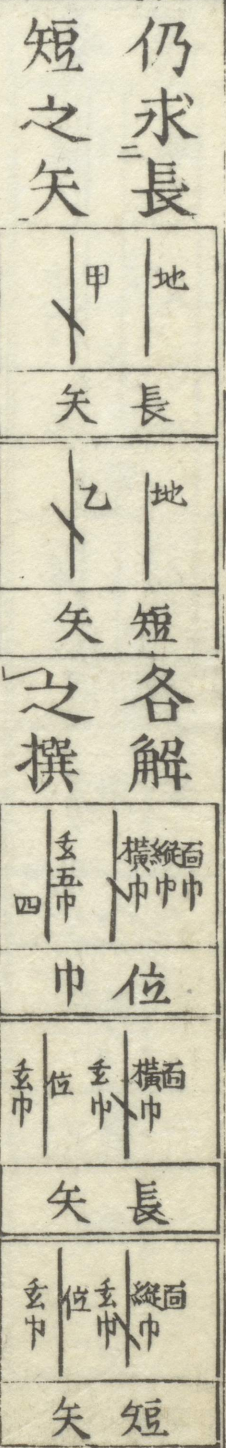 仍求二長
短之矢
地
甲
長矢
地
乙
短矢
各解
之撰
靣巾
縱巾
橫巾
玄五巾
四
位巾
靣
橫巾
玄巾
位
玄巾
長矢
靣
縱巾
玄巾
位
玄巾
短矢